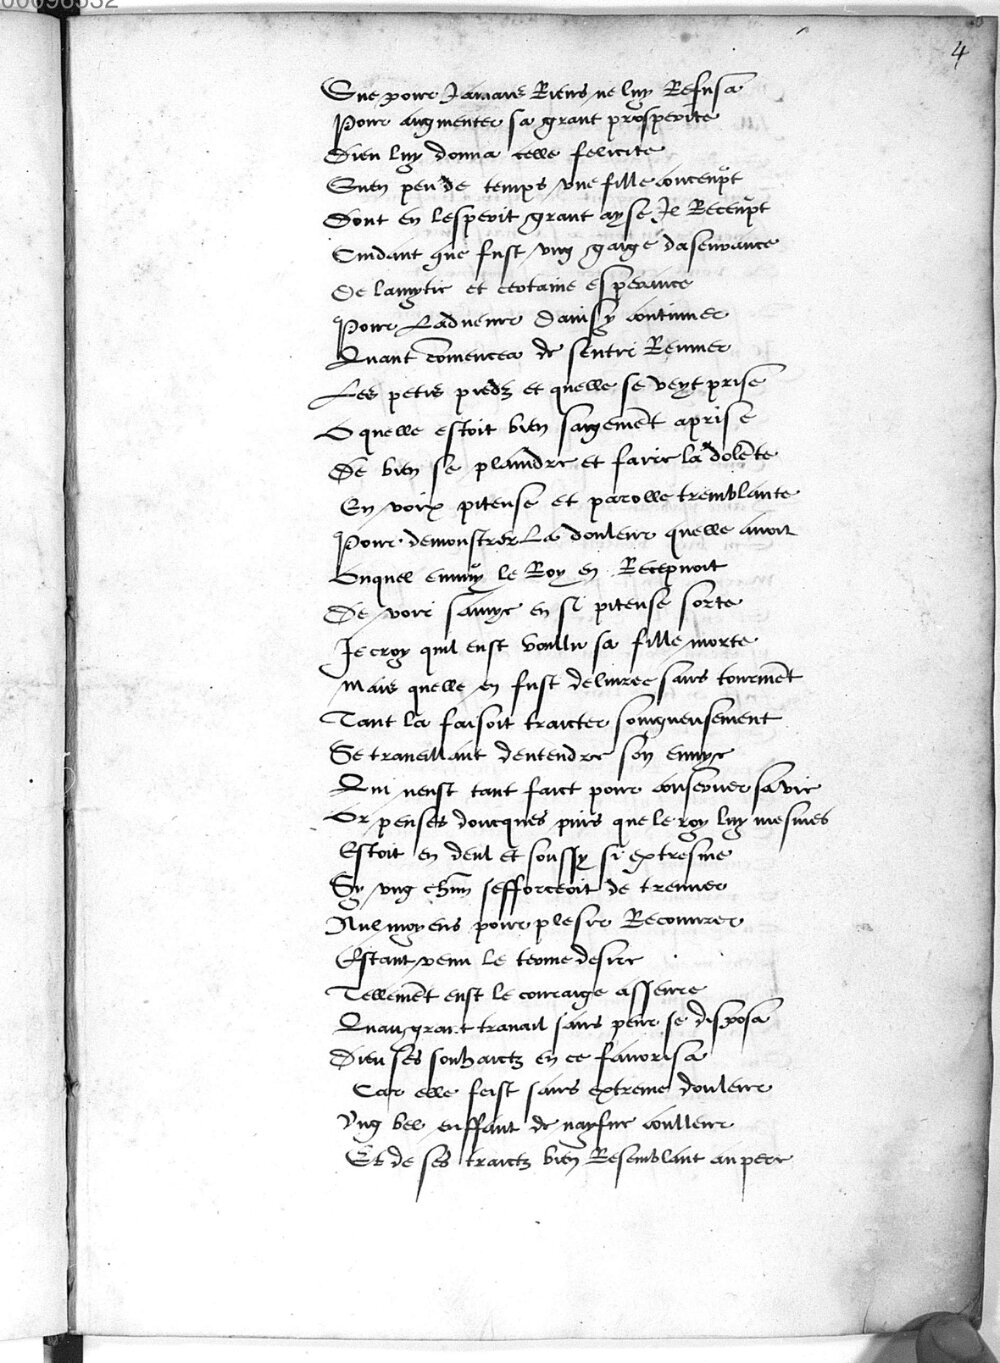 00096532
4
Que pour Jamais Riens ne luy Refusa
Pour augmenter sa grant prosperite
Dieu luy donna celle felicite
Quen peu de temps une fille conceupt
Dont en lesperit grant ayse Il Receupt
Cuidant que fust ung gaige dasseurance
De lamytie et certaine esperance
Pour Ladvenir continuer
Quant comencea de sentir Remuer
Les petis piedz et quelle se veyt prise
O quelle estoit bien saigemēt aprise
De bien se plaindre et faire la dolēte
En voix piteuse et parolle tremblante
Pour demonstrer La douleur quelle avoit
Duquel ennuy le Roy en Recepvoit
De voir samye en si piteuse sorte
Je croy quil eust voullu sa fille morte
Mais quelle en fust delivree sans tourmēt
Tant la faisoit traicter soingneusement
Se travaillant dentendre son envye
Qui neust tant faict pour conserver sa vie
Or penses doncques puis que le roy luy mesmes
Estoit en deul et soussy si extresme
Sy ung chūn sefforceoit de trouver
Nul moyens pour plesir Recouvrer
Estant venu le terme desire
Tellemēt eust le couraige asseure
Quau grant travail sans peur se disposa
Dieu ses souhaictz en ce favorisa
Car elle feist sans extreme douleur
Ung bel enffant de nayfve coulleur
Et de ses traictz bien Resemblant au pere